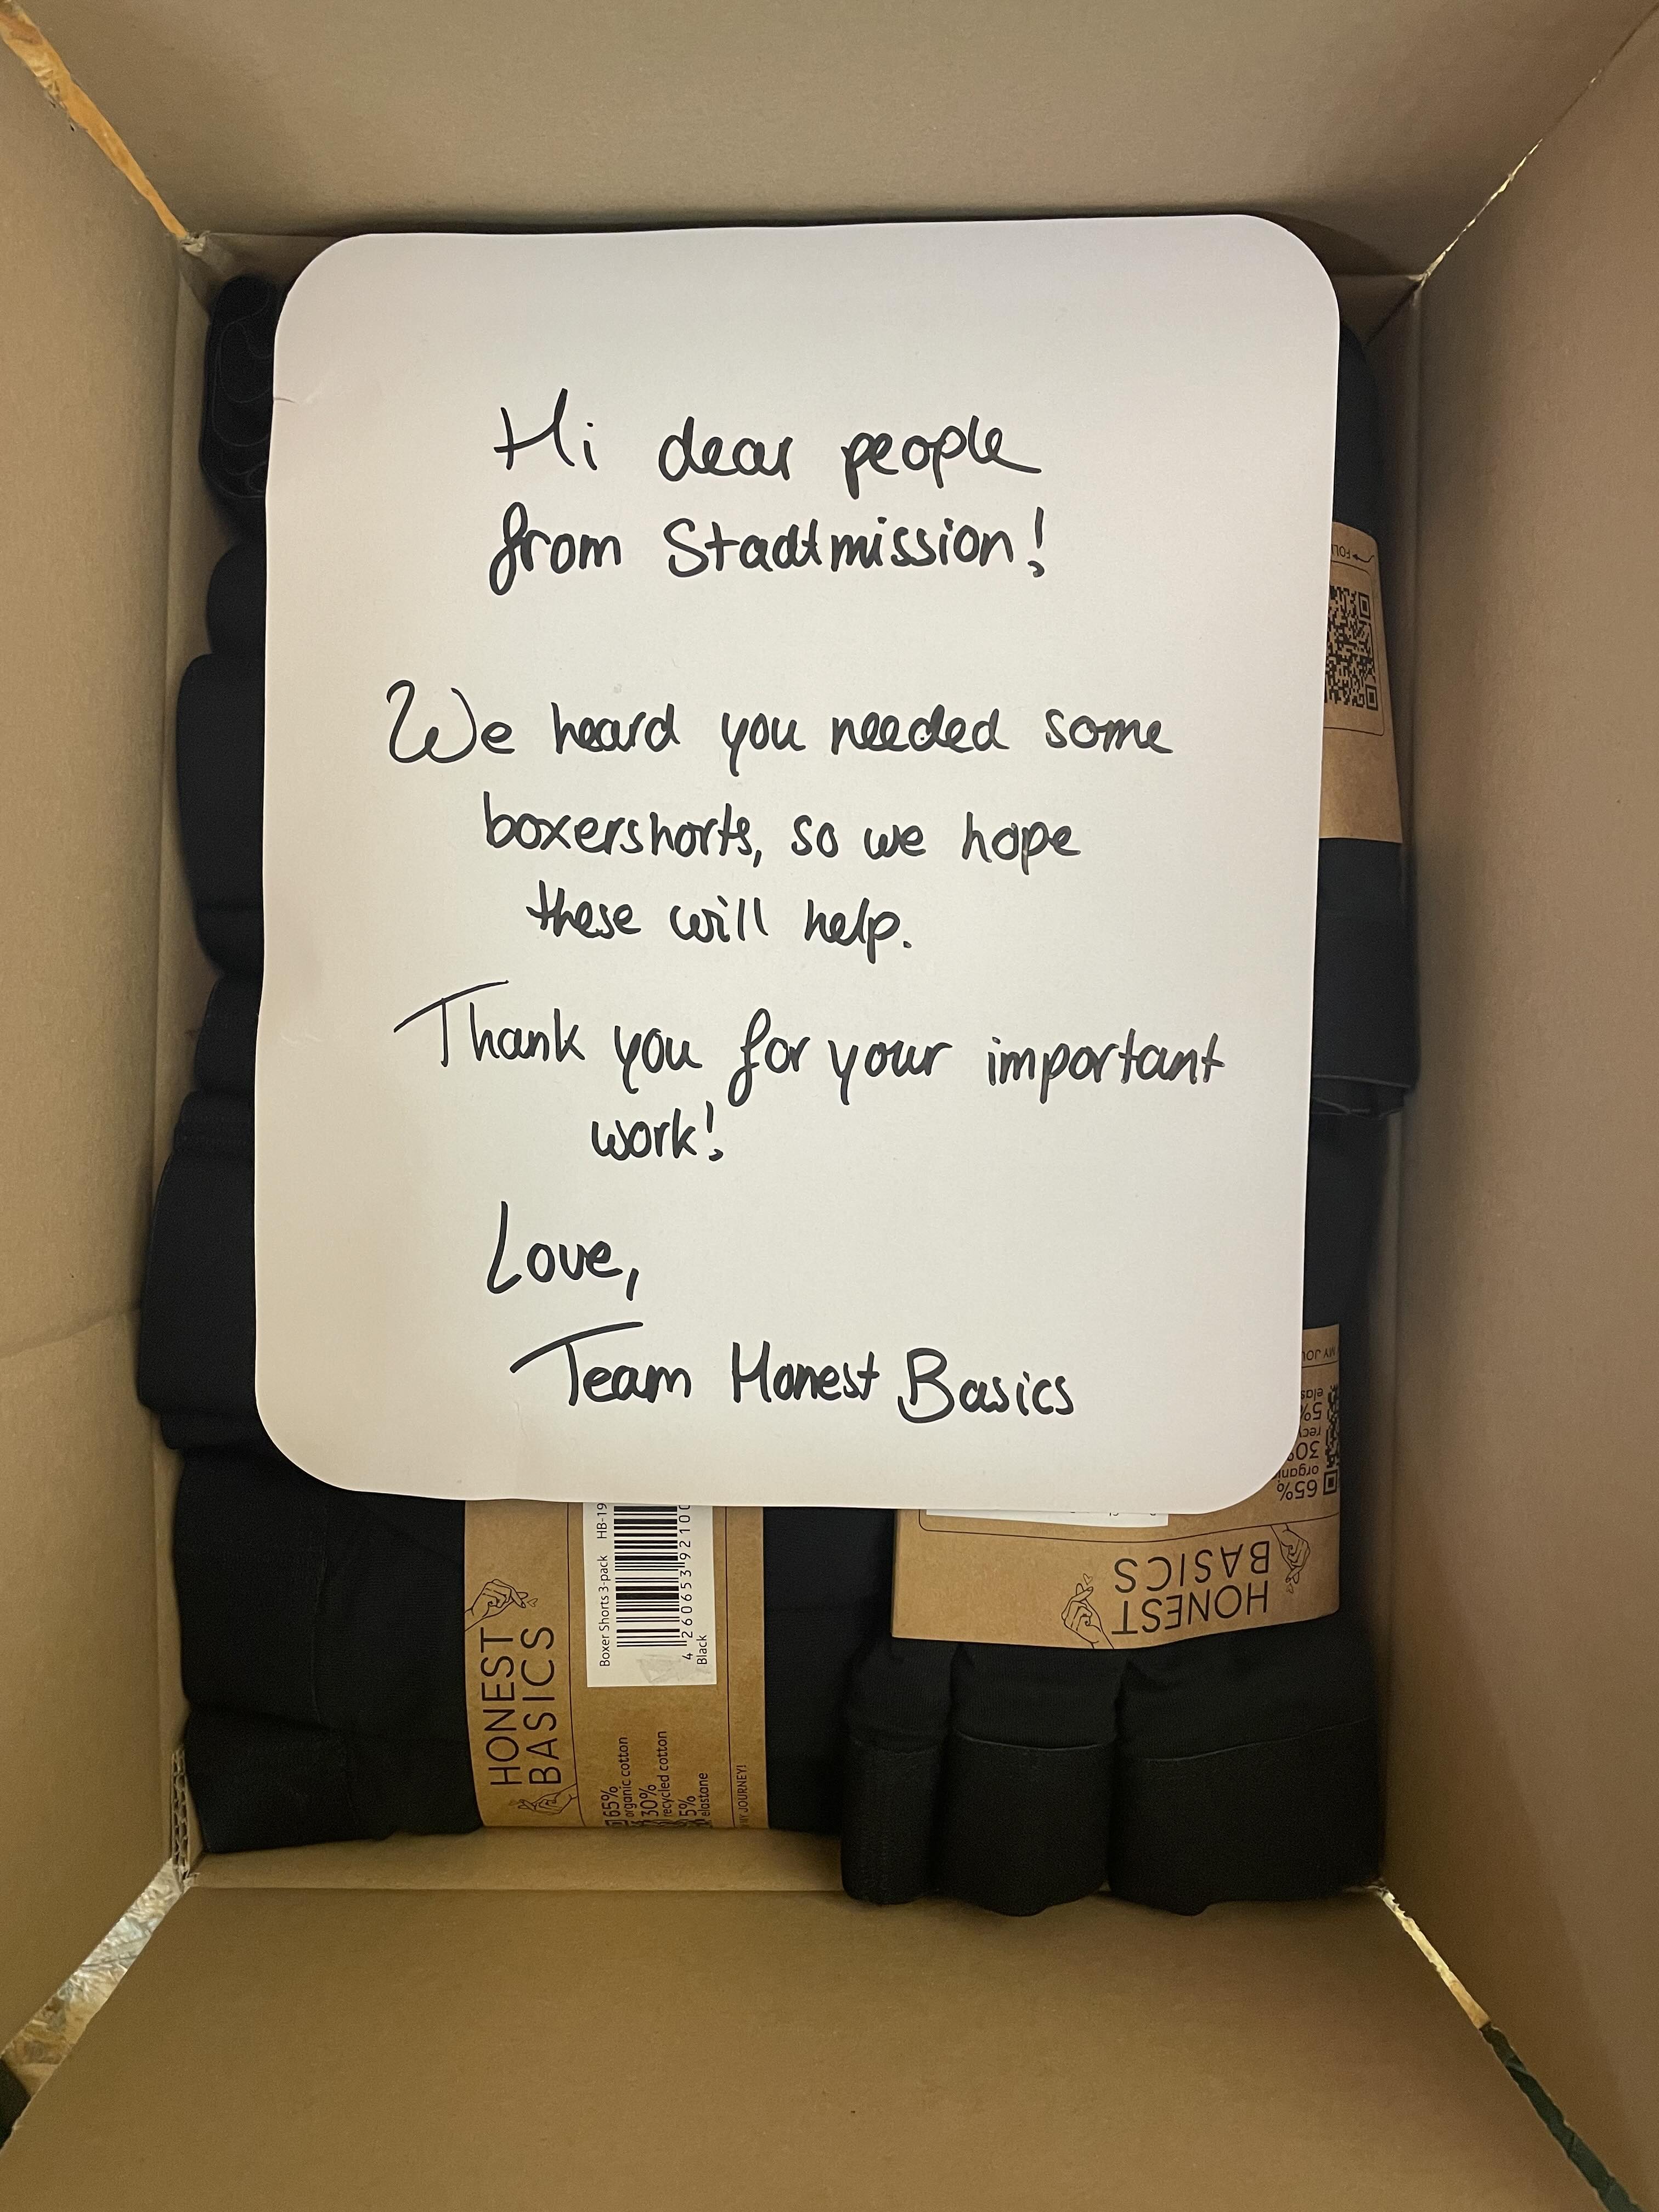 Hi dear people
from Stadtmission!
We heard you needed some
boxershorts, so we hope
these will help.
Thank you for your important
work!
Love,
Team Honest Basics
HONEST
BASICS
Boxer Shorts 3-pack HB-19
4 260653 92100
Black
65%
organic cotton
30%
recycled cotton
5%
elastane
JOURNEY!
HONEST
BASICS
65%
organic
30%
5%
MY